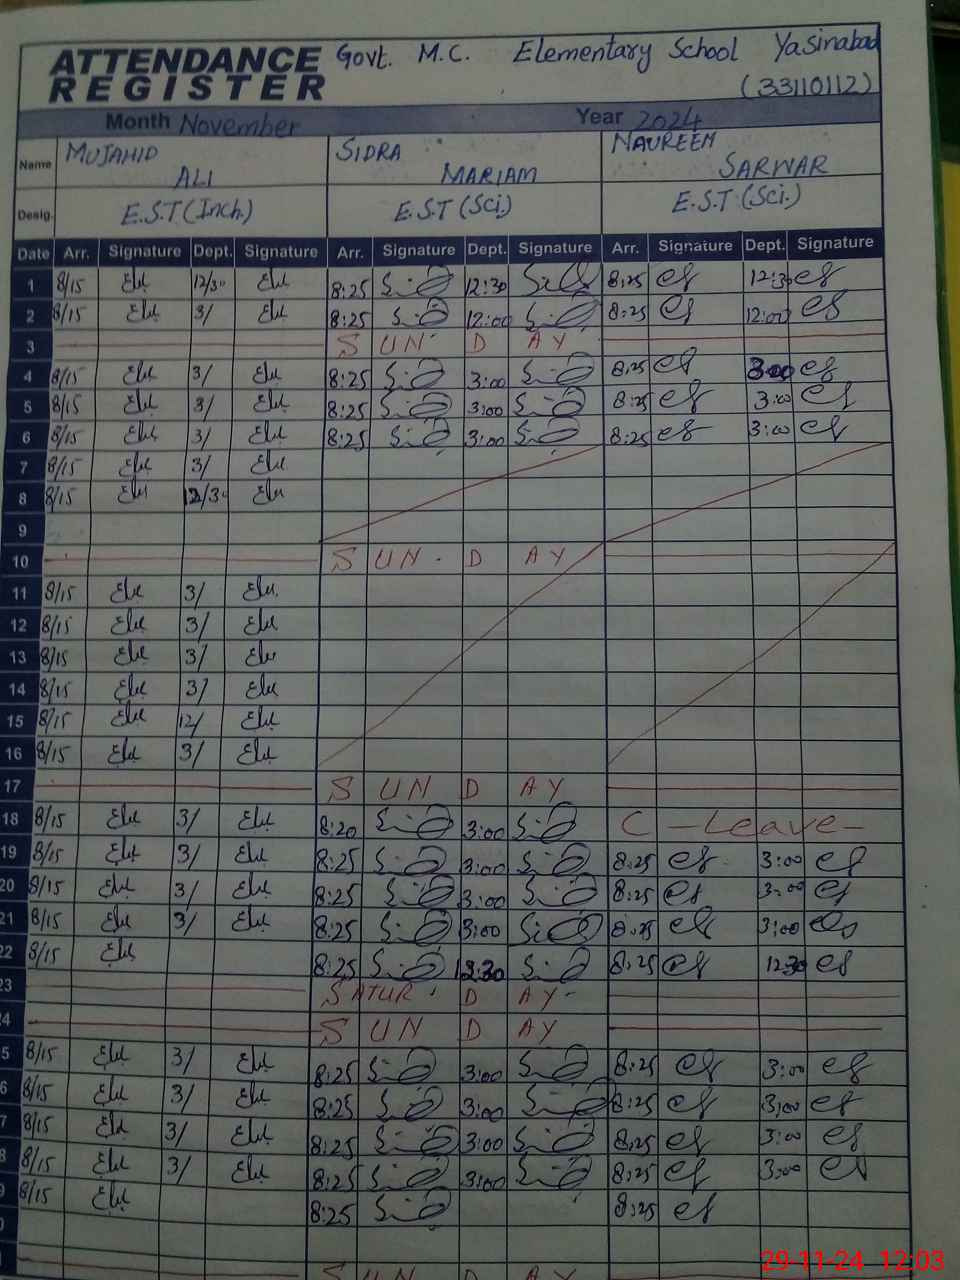 ATTENDANCE REGISTER Govt. M.C. Elementary School Yasinabad
(33110112)
Month November Year 2024
Name MUJAHID ALI SIDRA MARIAM NAUREEN SARWAR
Desig. E.S.T (Inch.) E.S.T (Sci.) E.S.T (Sci.)
Date Arr. Signature Dept. Signature Arr. Signature Dept. Signature Arr. Signature Dept. Signature
1 8/15 12/30 8:25 12:30 8:25 12:30
2 8/15 3/ 8:25 12:00 8:25 12:00
3 SUN DAY
4 8/15 3/ 8:25 3:00 8:25 3:00
5 8/15 3/ 8:25 3:00 8:25 3:00
6 8/15 3/ 8:25 3:00 8:25 3:00
7 8/15 3/
8 8/15 12/30
9
10 SUN DAY
11 8/15 3/
12 8/15 3/
13 8/15 3/
14 8/15 3/
15 8/15 12/
16 8/15 3/
17 SUN DAY
18 8/15 3/ 8:20 3:00 C-Leave-
19 8/15 3/ 8:25 3:00 8:25 3:00
20 8/15 3/ 8:25 3:00 8:25 3:00
21 8/15 3/ 8:25 3:00 8:25 3:00
22 8/15 8:25 12:30 8:25 12:30
23 SATUR DAY
24 SUN DAY
5 8/15 3/ 8:25 3:00 8:25 3:00
6 8/15 3/ 8:25 3:00 8:25 3:00
7 8/15 3/ 8:25 3:00 8:25 3:00
8 8/15 3/ 8:25 3:00 8:25 3:00
9 8/15 8:25 8:25
0
SUN DAY
29-11-24 12:03